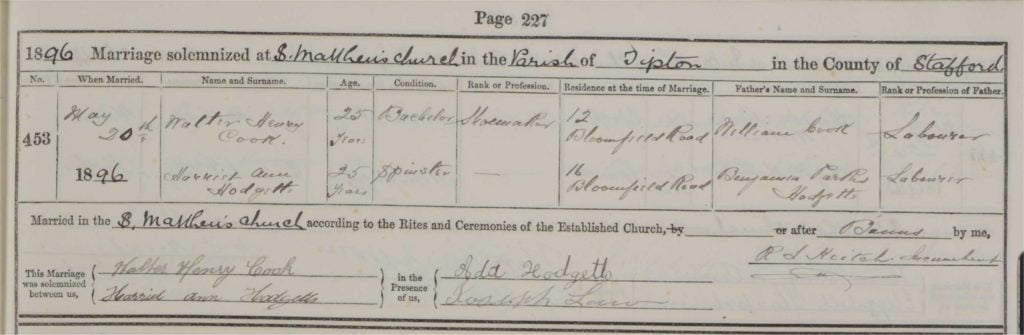 Page 227
1896 Marriage solemnized at S. Matthew's church in the Parish of Tipton in the County of Stafford
No. When Married. Name and Surname. Age. Condition. Rank or Profession. Residence at the time of Marriage. Father's Name and Surname. Rank or Profession of Father.
453 May 20th 1896
Walter Henry Cook. 25 Years Bachelor Shoemaker 12 Bloomfield Road William Cook Labourer
Harriet Ann Hodgetts 25 Years Spinster — 16 Bloomfield Road Benjamin Parkes Hodgetts Labourer
Married in the S. Matthew's church according to the Rites and Ceremonies of the Established Church, by or after Banns by me,
This Marriage was solemnized between us, Walter Henry Cook
Harriet Ann Hodgetts
in the Presence of us, Ada Hodgetts
Joseph
R S